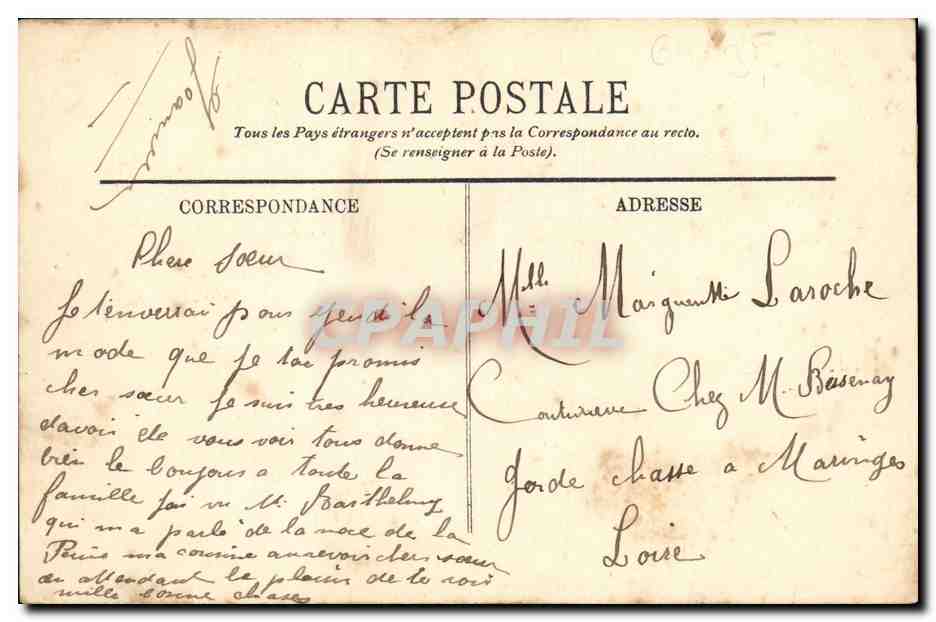 Joannier
CARTE POSTALE
Tous les Pays étrangers n'acceptent pas la Correspondance au recto.
(Se renseigner à la Poste).
CORRESPONDANCE
ADRESSE
Chere sœur
Je tenverrai pour jeudi la
mode que je tai promis
cher sœur je suis tres heureuse
davoir ete vous voir tous donne
bien le bonjous a toute la
famille jai vu Mr Barthelmy
qui ma parlé de la noce de la
ma cousine aurevoir cher sœur
en attendant le plaisir de te voir
mille bonne choses
Melle Marguerite Laroche
Couturière Chez M. Bessenay
Garde chasse a Maringes
Loire
CPAPHIL